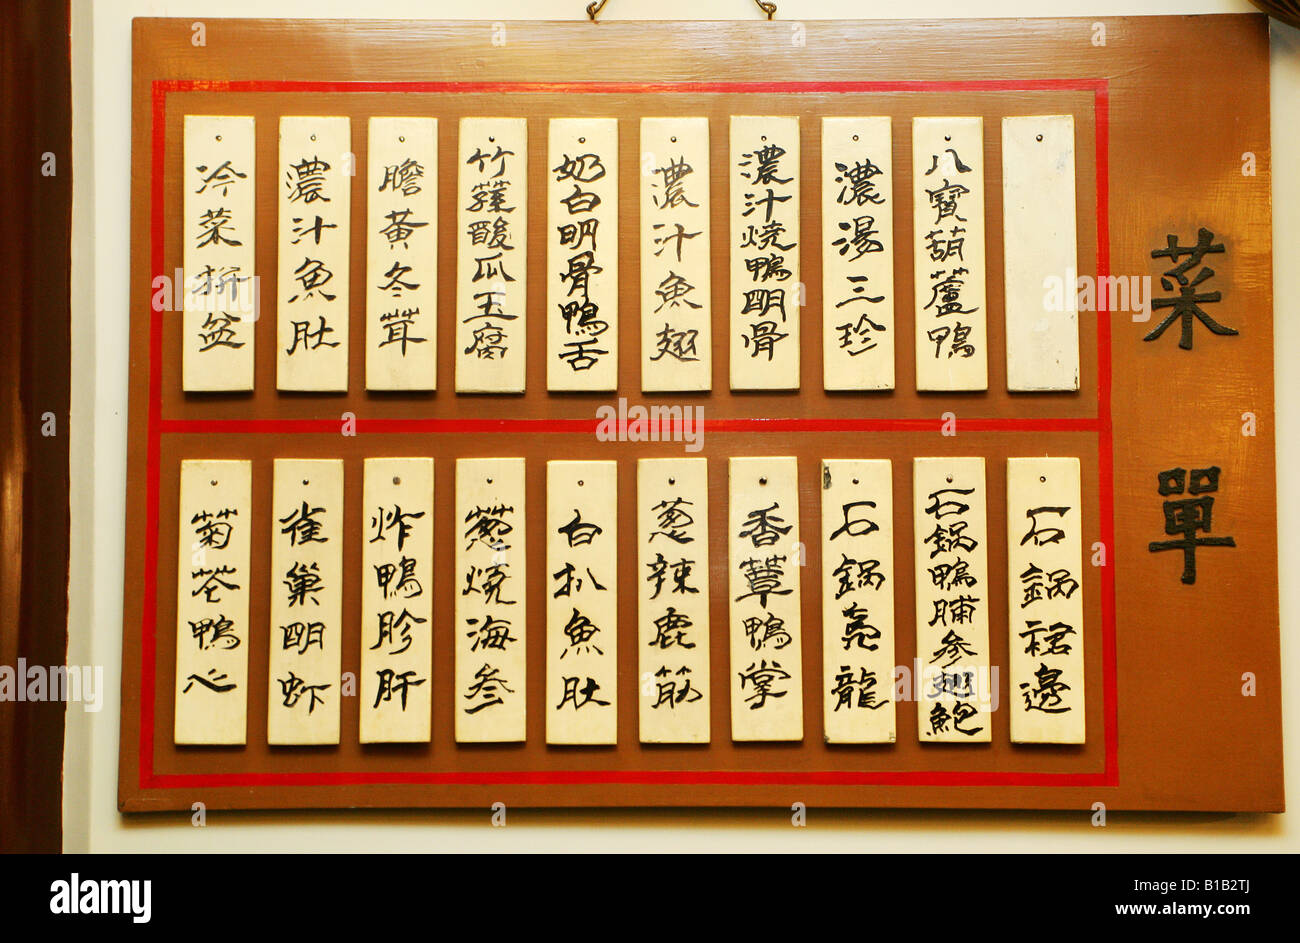 菜單
八寶葫蘆鴨
濃湯三珍
濃汁燒鴨明骨
濃汁魚翅
奶白明骨鴨舌
竹蓀酸瓜玉腐
膽黃冬茸
濃汁魚肚
冷菜拼盆
石鍋裙邊
石鍋鴨脯參翅鮑
石鍋亮龍
香蕈鴨掌
蔥辣鹿筋
白扒魚肚
蔥燒海參
炸鴨胗肝
雀巢明蝦
菊花鴨心
alamy
Image ID: B1B2TJ
www.alamy.com